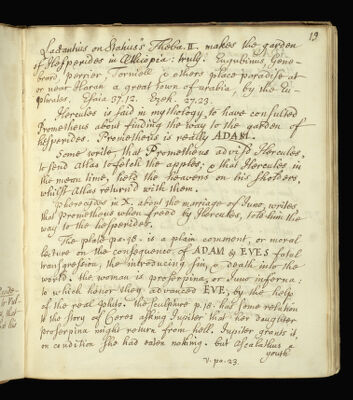 19
Lactantius on Statius's Theba. II. makes the garden
of Hesperides in Æthiopia: truly. Eugubinus, Gene-
brard, perrier, Torniell & others place paradise at
or near Haran a great town of arabia, by the Eu-
phrates. Esaia 37.12. Ezek. 27.23.
Hercules is said in mythology, to have consulted
Prometheus about finding the way to the garden of
hesperides. Prometheus is really ADAM.
Some write that Prometheus advis'd Hercules,
to send atlas to fetch the apples; & that Hercules in
the mean time, held the heavens on his sholders,
whilst Atlas return'd with them.
Pherecydes in X. about the marriage of Juno, writes,
that Prometheus when freed by Hercules, told him the
way to the hesperides.
The plate pa. 98. is a plain comment, or moral
lecture on the consequence, of ADAM & EVES fatal
transgression, the introducing sin, & death into the
world. the woman is proserpina, or Juno inferna:
to which honor they advanced EVE; by the help
of the real Pluto. the sculpture p. 18. has some relation
to the story of Ceres asking Jupiter that her daughter
proserpina might return from hell. Jupiter grants it,
on condition she had eaten nothing. but Ascalathus a
youth
v. pa. 23.